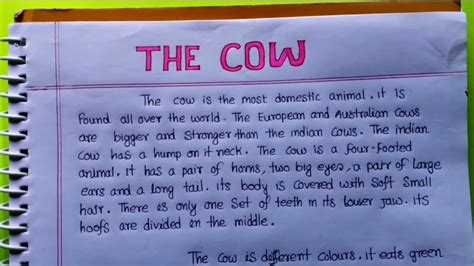 THE COW
The cow is the most domestic animal. it is
Found all over the world. The European and Australian Cows
are bigger and Stronger than the indian Cows. The indian
Cow has a hump on it neck. The Cow is a four-footed
animal. it has a pair of horns, two big eyes, a pair of large
ears and a long tail. its body is Covered with Soft Small
hair. There is only one Set of teeth in its lower jaw. its
hoofs are divided in the middle.
The Cow is different Colours. it eats green